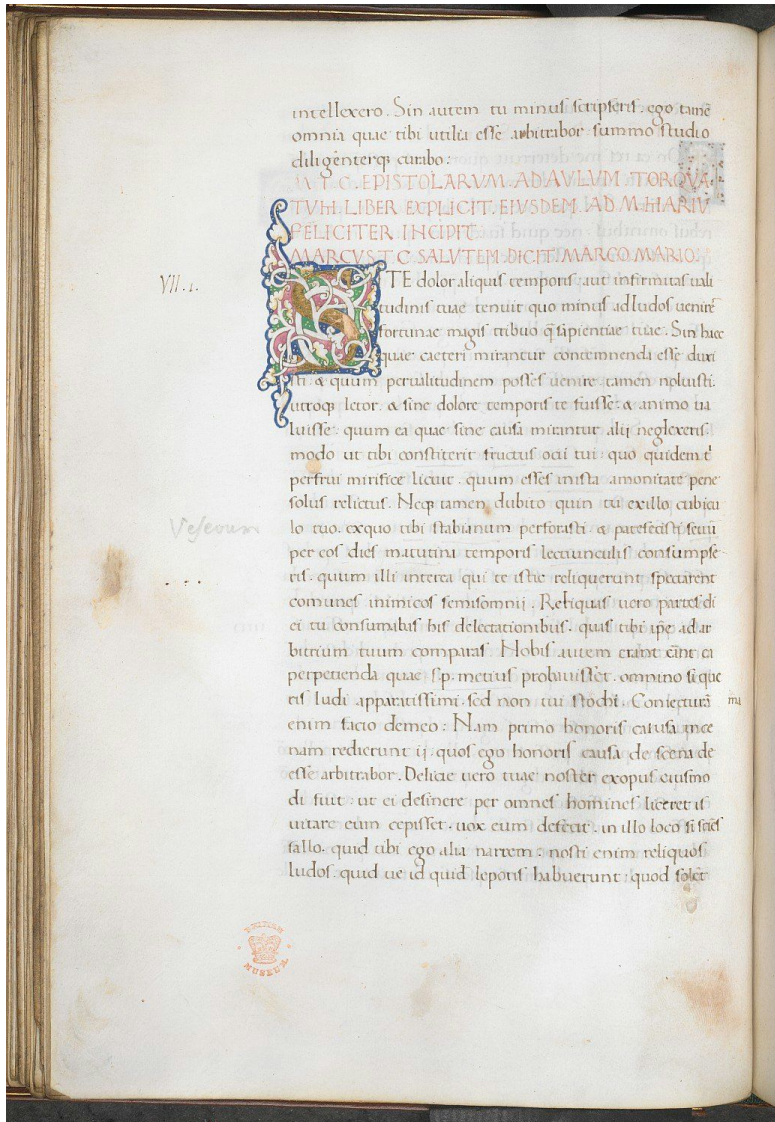 intellexero. Sin autem tu minus scripseris. ego tamē
omnia quae tibi utilia esse arbitrabor summo studio
diligenterq; curabo:
M T C. EPISTOLARVM. AD AVLVM TORQVA
TVM. LIBER EXPLICIT. EIVSDEM AD M. MARIV
FELICITER INCIPIT.
MARCVS T C SALVTEM DICIT. MARCO MARIO.
VII. 1.
S I TE dolor aliquis temporis. aut infirmitas uali
tudinis tuae tenuit quo minus ad ludos uenire
fortunae magis tribuo q̄ sapientiae tuae. Sin haec
quae caeteri mirantur contemnenda esse duxi
sti. & quum per ualitudinem posses uenire. tamen noluisti.
utroq; letor. & sine dolore temporis te fuisse. & animo ua
luisse. quum ea quae sine causa mirantur alij neglexeris.
modo ut tibi constiterit fructus ocii tui. quo quidem t'
perfrui mirifice licuit. quum esses in ista amonitate pene
solus relictus. Neq; tamen dubito quin tu ex illo cubicu
lo tuo. ex quo tibi stabianum perforasti. & patefecisti
per eos dies matutina tempora lectiunculis consumpse
ris. quum illi interea qui te istic reliquerunt spectarent
comunes mimicos semisomnij. Reliquas uero partes di
ei tu consumabas his delectationibus. quas tibi ipe ad ar
bitrium tuum comparas. Nobis autem erant ea
perpetienda quae s.p. metius probauisset. omnino si que
ris ludi apparatissimi. sed non tui stochi. Coniecturā
enim facio de meo. Nam primo honoris causa in sce
ma
nam redierunt ij. quos ego honoris causa de scena de
esse arbitrabor. Delicie uero tuae noster exopus eiusmo
di fuit. ut ei desinere per omnes homines liceret is
iurare cum cepisset. uox eum defecit. in illo loco si sciēs
fallo. quid tibi ego alia narrem. nosti enim reliquos
ludos. quid ue id quid leporis habuerunt. quod solet
BRITISH
MUSEUM